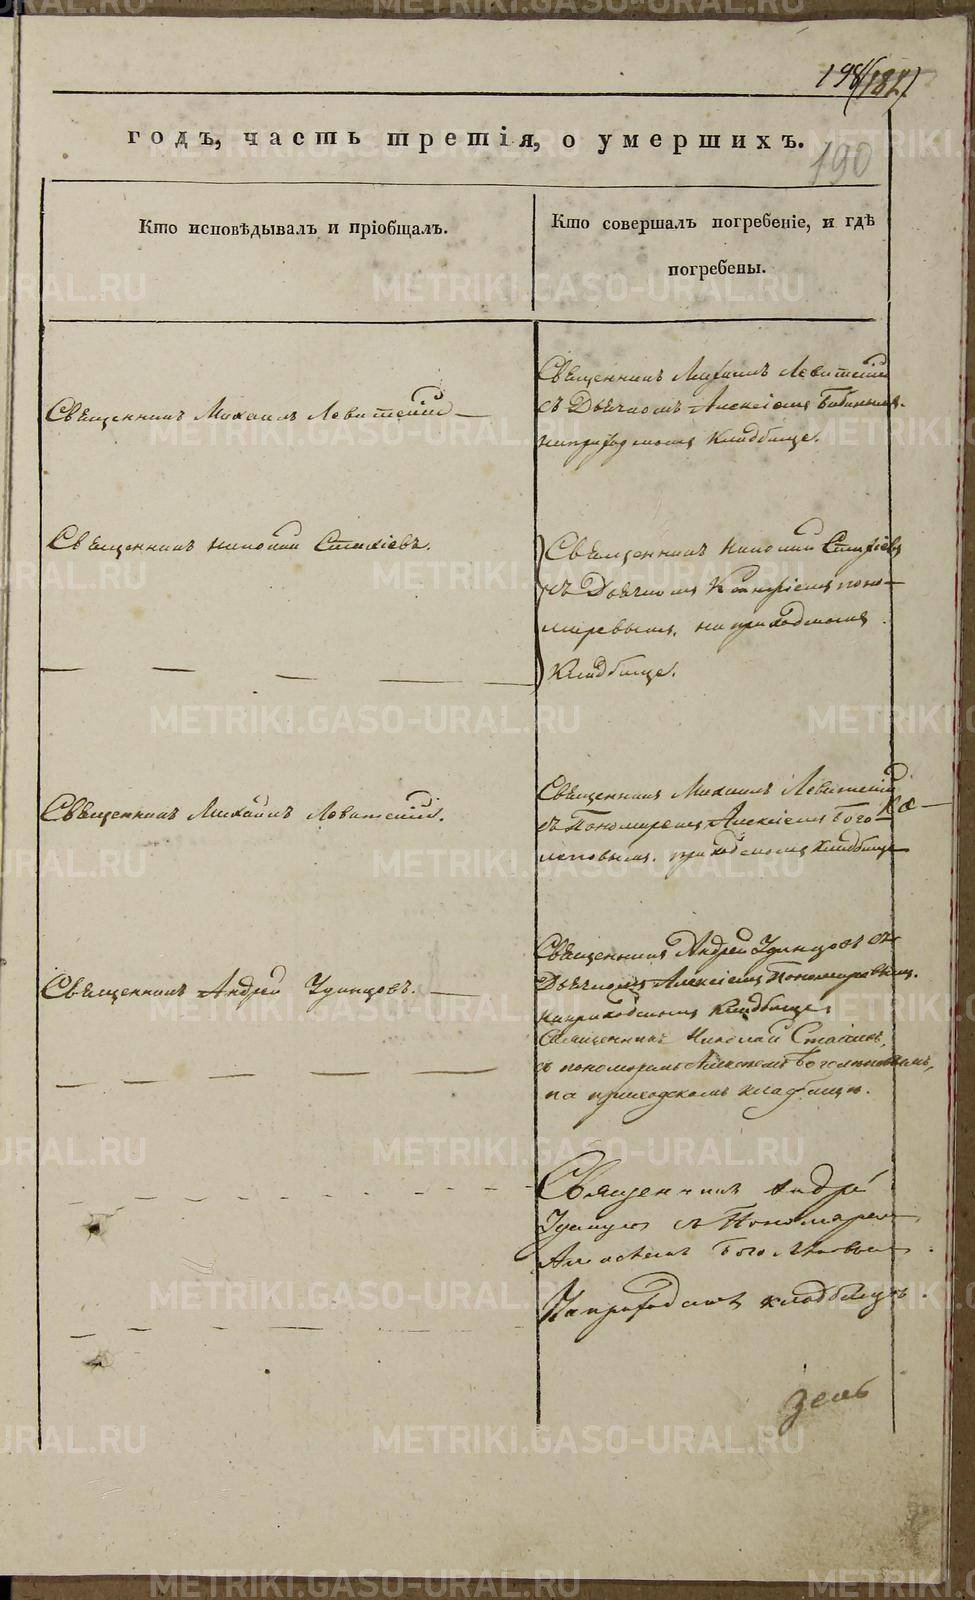 198 (187)
190
годъ, часть третія, о умершихъ.
Кто исповѣдывалъ и пріобщалъ.
Кто совершалъ погребеніе, и гдѣ
погребены.
Священникъ Михаилъ Левитскій
Священникъ Михаилъ Левитскій
съ Дьячкомъ Алексіемъ
на приходскомъ Кладбище.
Священникъ Николай Стахіевъ.
Священникъ Николай Стахіевъ
съ Дьячкомъ поно-
маревымъ, на приходскомъ
Кладбище.
Священникъ Михаилъ Левитскій.
Священникъ Михаилъ Левитскій
съ Пономаремъ Алексіемъ Бого
леповымъ. приходскомъ Кладбище
на
Священникъ Андрей Удинцовъ.
Священникъ Андрей Удинцовъ съ
Дьячкомъ Алексіемъ Пономаревымъ.
на приходскомъ Кладбище
Священникъ Николай Стахіевъ,
съ пономаремъ Алексіемъ Боголеповымъ,
на приходскомъ кладбищѣ.
Священникъ Андрей
Удинцовъ съ Пономаремъ
Алексѣемъ Боголеповымъ.
На приходскомъ кладбищѣ.
METRIKI.GASO-URAL.RU